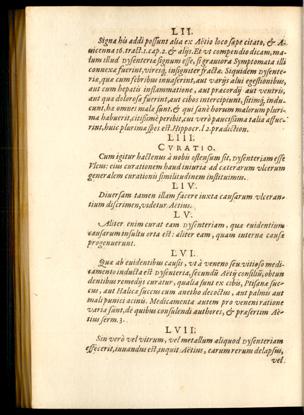 LII.
Signa his addi possunt alia ex Aëtio loco sæpe citato, & A-
uicenna 16. tract. 1. cap. 2. & alijs. Et vt compendio dicam, ma-
lum illud dysenteria signum esse, si grauiora Symptomata illi
connexa fuerint, viresq; insigniter fractæ. Siquidem dysente-
ria, qua cum febribus inuaserint, aut varijs alui egestionibus,
aut cum hepatis inflammatione, aut præcordij aut ventris,
aut qua dolorosa fuerint, aut cibos intercipiunt, sitimq; indu-
cunt, ha omnes mala sunt, & qui sanè horum malorum pluri-
ma habuerit, citissimè peribit, cui verò paucissima talia affue-
rint, huic plurima spes est. Hippocr. l. 2. prædiction.
LIII.
CVRATIO.
Cum igitur hactenus à nobis ostensum sit, dysenteriam esse
Vlcus: eius curationem haud iniuria ad cæterarum vlcerum
generalem curationis similitudinem instituimus.
LIV.
Diuersam tamen illam facere iuxta causarum vlceran-
tium discrimen, videtur Aetius.
LV.
Aliter enim curat eam dysenteriam, qua euidentium
causarum insultu orta est: aliter eam, quam interna causæ
progenuerunt.
LVI.
Qua ab euidentibus causis, vt à veneno seu vitioso medi-
camento inducta est dysenteria, secundũ Aëtij consiliũ, obtun
dentibus remedijs curatur, qualia sunt ex cibis, Ptisanæ suc-
cus, aut Halicæ succus cum anetho decoctus, aut palmi aut
mali punici acinis. Medicamenta autem pro veneni ratione
varia sunt, de quibus consulendi authores, & præsertim Aë-
tius serm. 3.
LVII.
Sin verò vel vitrum, vel metallum aliquod dysenteriam
effecerit, iuuandus est, inquit Aëtius, earum rerum delapsus,
vel